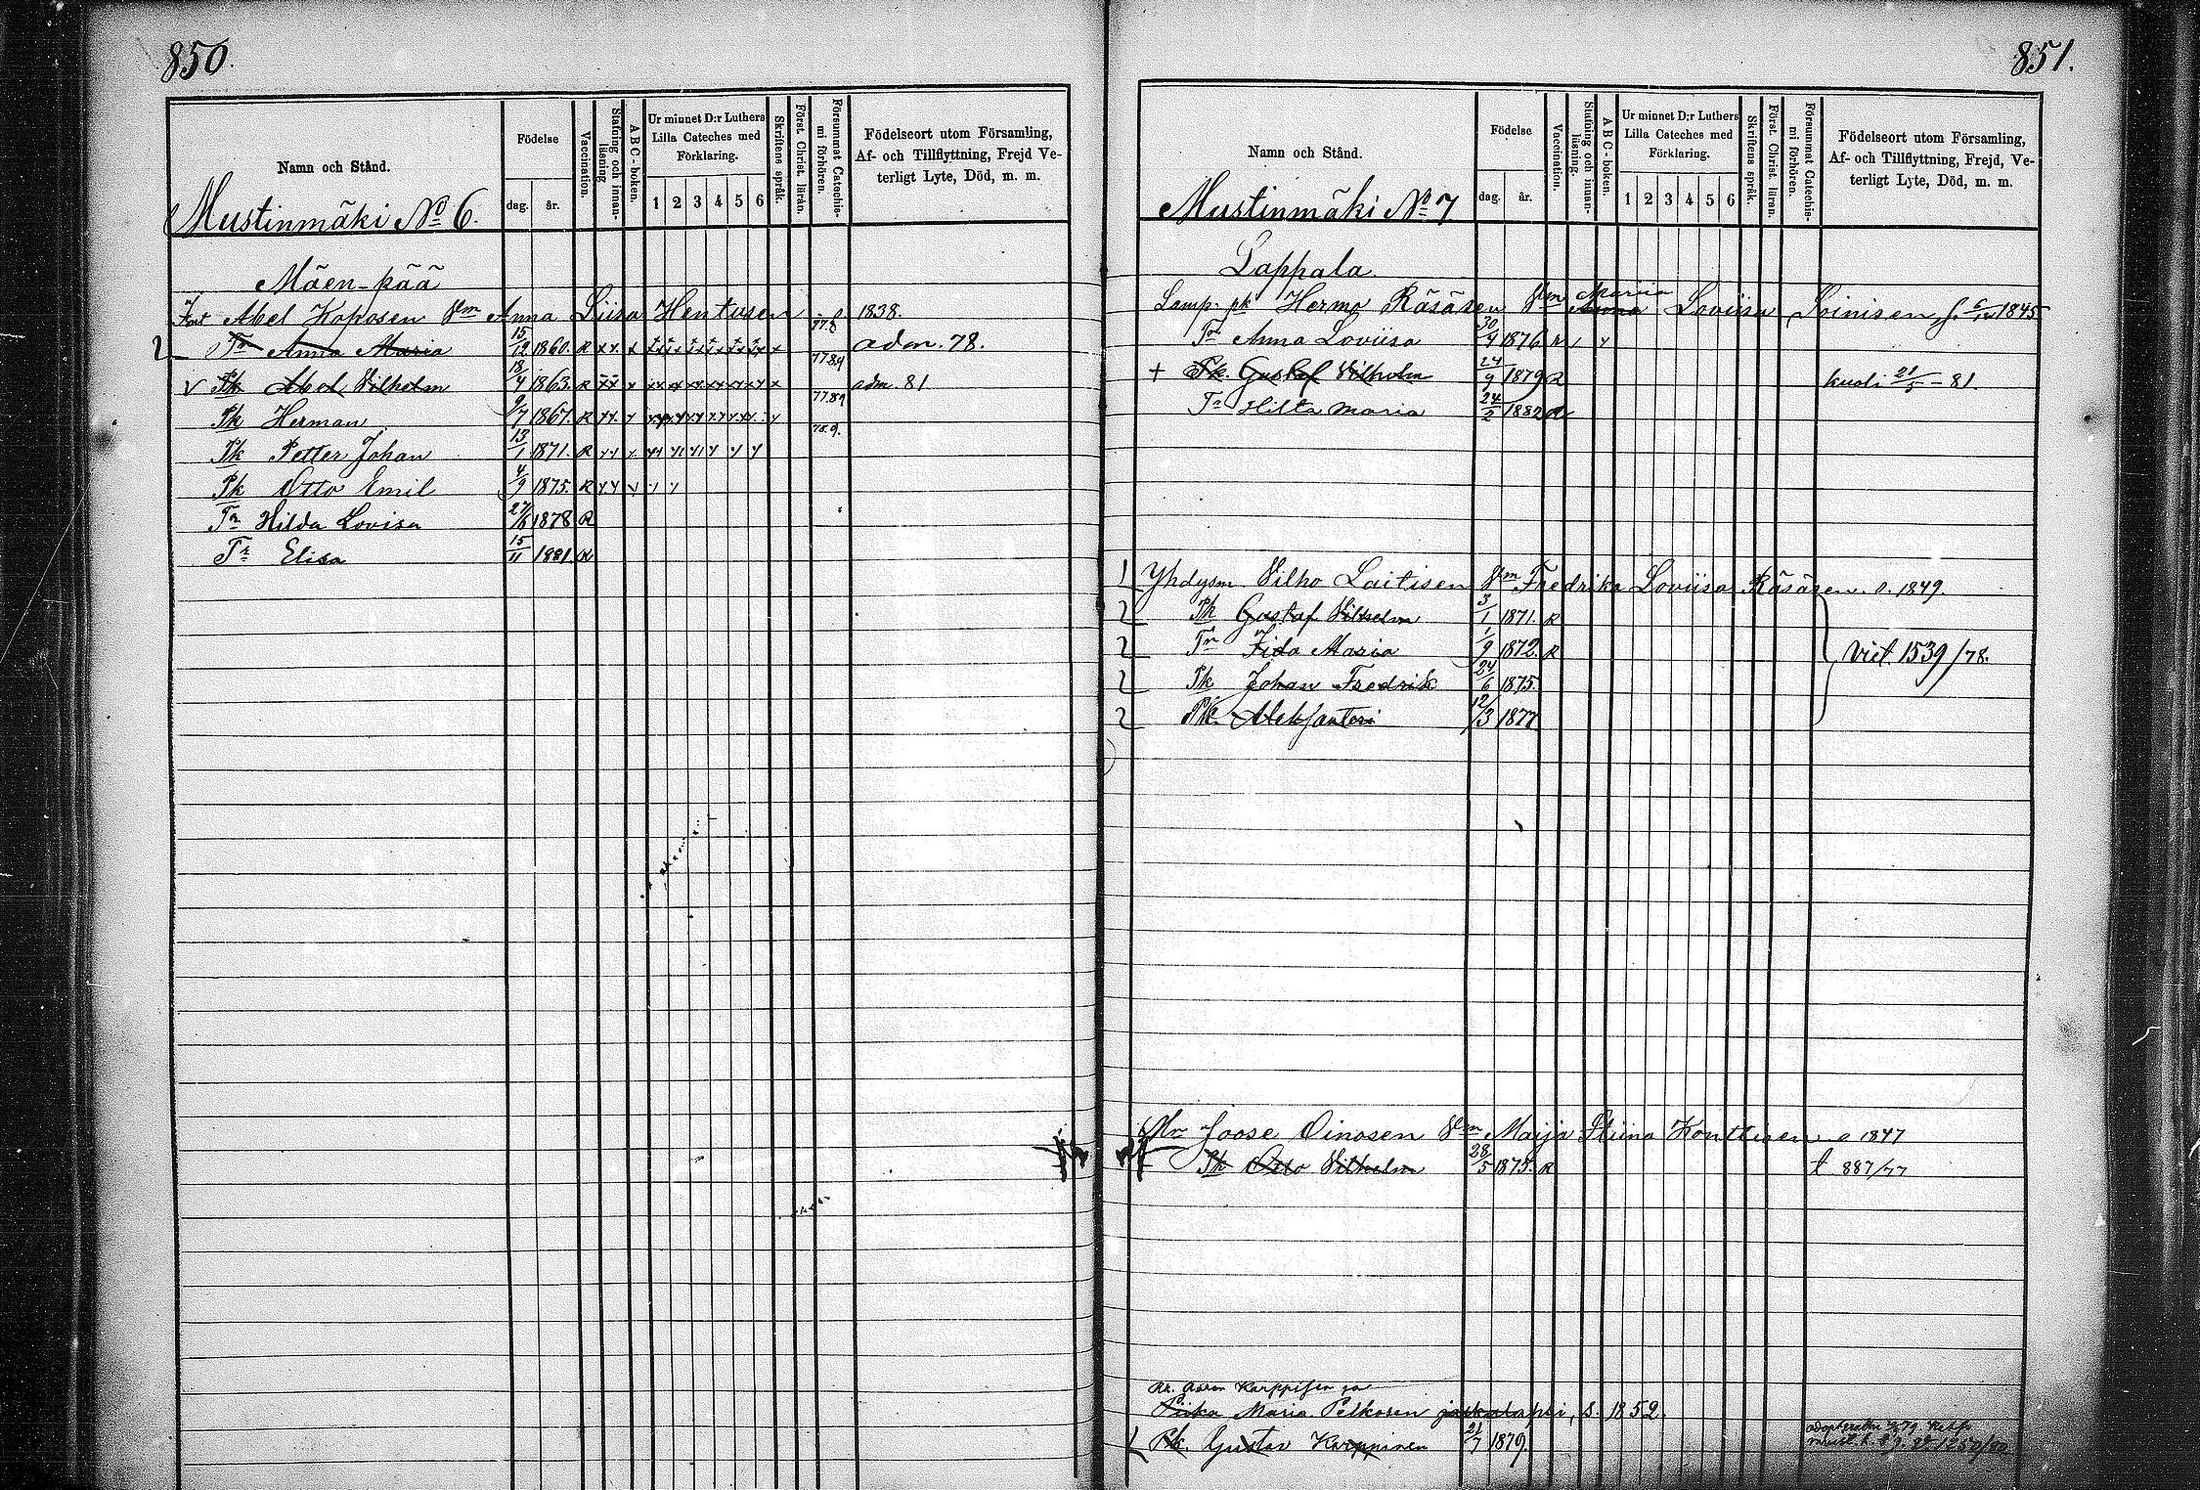 850.
Namn och Stånd.
Födelse
dag. år.
Vaccination.
Stafning och innan-läsning
ABC-boken.
Ur minnet D:r Luthers Lilla Cateches med Förklaring.
1 2 3 4 5 6
Skriftens språk.
Först. Christ. läran.
Försummat Catechis-mi förhören.
Födelseort utom Församling, Af- och Tillflyttning, Frejd Ve-terligt Lyte, Död, m. m.
Mustinmäki No 6.
Mäen-pää
Abel Koposen Vm Anna Liisa Hentusen 1838.
Tr Anna Maria 15/12 1860. R adm. 78.
Pk Abel Vilhelm 18/4 1863. R adm. 81
Pk Herman 9/7 1867. R
Pk Petter Johan 13/1 1871. R
Pk Otto Emil 4/9 1875. R
Tr Hilda Lovisa 1878 R
Tr Elisa 15/11 1881. R
851.
Namn och Stånd.
Födelse
dag. år.
Vaccination.
Stafning och innan-läsning.
ABC-boken.
Ur minnet D:r Luthers Lilla Cateches med Förklaring.
1 2 3 4 5 6
Skriftens språk.
Först. Christ. läran.
Försummat Catechis-mi förhören.
Födelseort utom Församling, Af- och Tillflyttning, Frejd, Ve-terligt Lyte, Död, m. m.
Mustinmäki No 7
Lappala.
Lamp. pk Hermo Räsäsen Vm Maria Loviisa Loinisen, 1845
Tr Anna Loviisa 30/4 1876 R
+ Pk. Gustaf Vilhelm 24/9 1879 R kuoli 21/5 - 81.
Tr Hilta Maria 24/2 1882 R
1 Yhdysm Vilho Laitisen Vm Fredrika Loviisa Räsäsen. s. 1849.
2 Pk Gustaf Vilhelm 3/1 1871. R
2 Tr Fida Maria 1/9 1872. R vict. 1539/78.
2 Pk Johan Fredrik 24/6 1875.
2 Pk. Aleksanteri 12/3 1877
Mr Joose Oinosen Vm Maija Stiina Konttisen s 1847
Pk Otto Vilhelm 28/5 1875. R t 887/77
Aaron Karppisen ja
Piika Maria Pelkosen s. 1852.
Pk. Gustav Karppinen 21/7 1879.